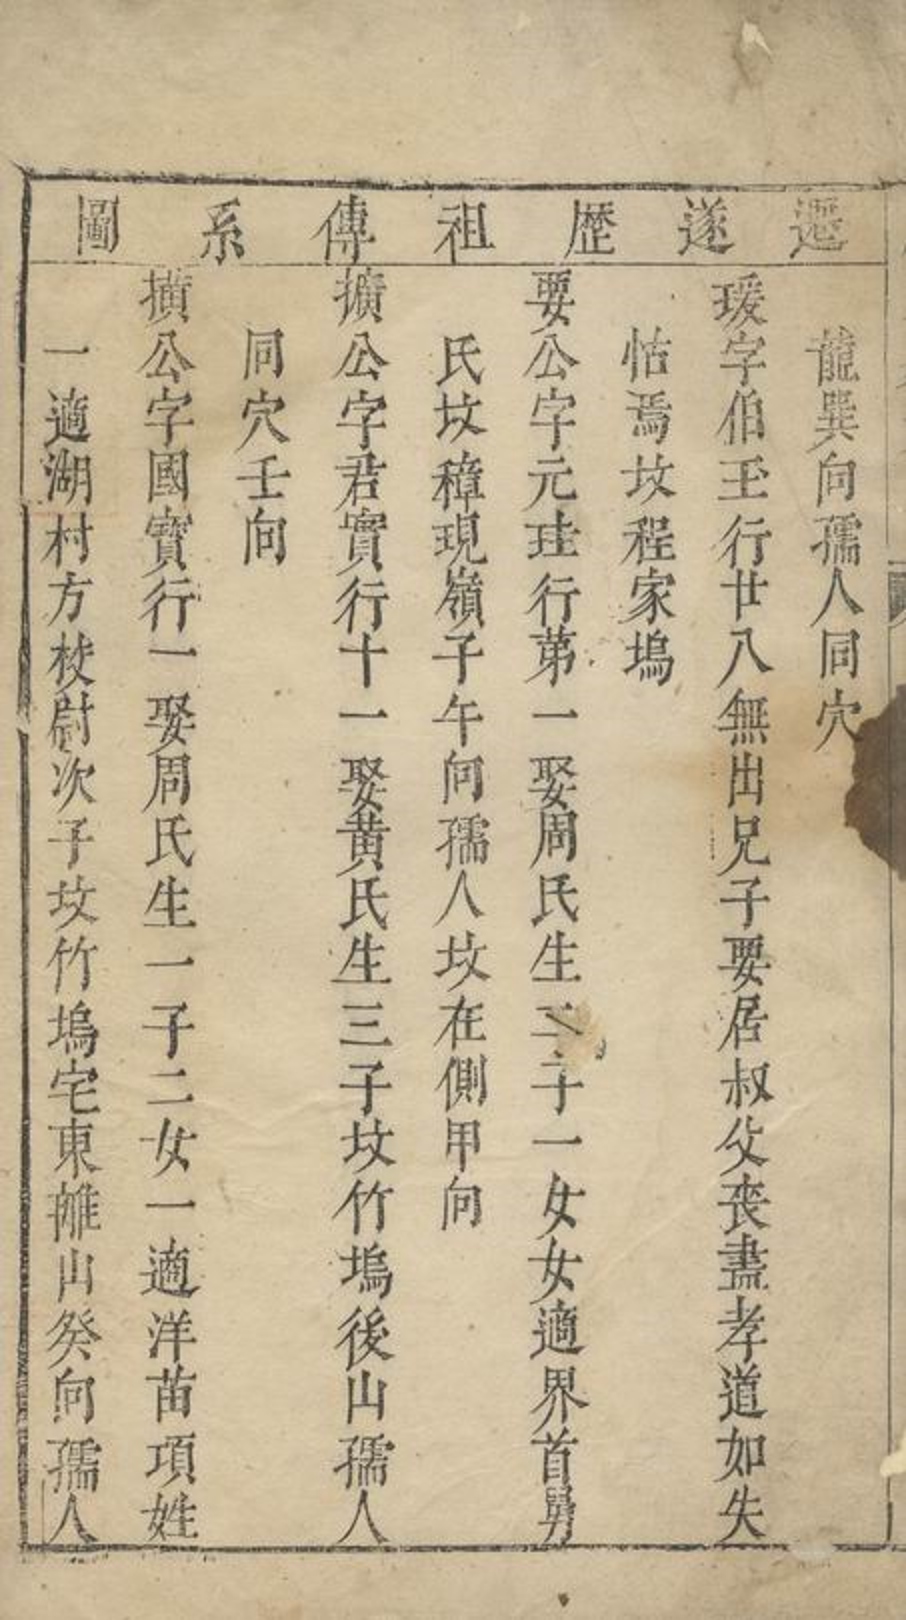 遷遂歷祖傳系圖
龍巽向孺人同穴
瑗字伯玉行廿八無出兄子要居叔父丧盡孝道如失
怙焉坟程家塢
要公字元珪行第一娶周氏生二子一女女適界首舅
氏坟樟現嶺子午向孺人坟在側甲向
擴公字君實行十一娶黄氏生三子坟竹塢後山孺人
同穴壬向
擴公字國寳行一娶周氏生一子二女一適洋苗項姓
一適湖村方校尉次子坟竹塢宅東離山癸向孺人